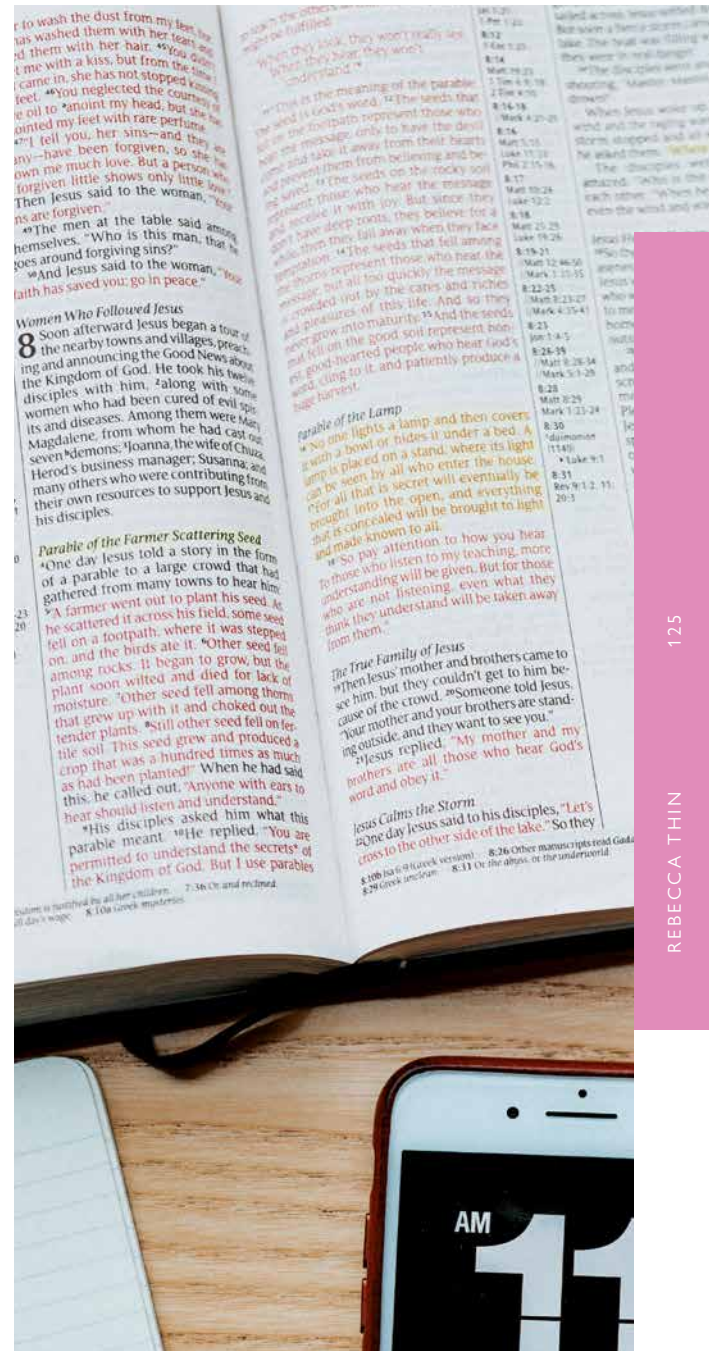 r to wash the dust from my feet, but
has washed them with her tears and
ed them with her hair. 45You didn't
t me with a kiss, but from the time I
came in, she has not stopped kissing
feet. 46You neglected the courtesy of
e oil to *anoint my head, but she has
ointed my feet with rare perfume.
47"I tell you, her sins—and they are
any—have been forgiven, so she has
own me much love. But a person who
forgiven little shows only little love."
Then Jesus said to the woman, "Your
ns are forgiven."
49The men at the table said among
hemselves, "Who is this man, that he
goes around forgiving sins?"
50And Jesus said to the woman, "Your
faith has saved you; go in peace."
Women Who Followed Jesus
8 Soon afterward Jesus began a tour of
the nearby towns and villages, preach-
ing and announcing the Good News about
the Kingdom of God. He took his twelve
disciples with him, 2along with some
women who had been cured of evil spir-
its and diseases. Among them were Mary
Magdalene, from whom he had cast out
seven demons; 3Joanna, the wife of Chuza,
Herod's business manager; Susanna; and
many others who were contributing from
their own resources to support Jesus and
his disciples.
Parable of the Farmer Scattering Seed
4One day Jesus told a story in the form
of a parable to a large crowd that had
gathered from many towns to hear him:
5"A farmer went out to plant his seed. As
he scattered it across his field, some seed
fell on a footpath, where it was stepped
on, and the birds ate it. 6Other seed fell
among rocks. It began to grow, but the
plant soon wilted and died for lack of
moisture. 7Other seed fell among thorns
that grew up with it and choked out the
tender plants. 8Still other seed fell on fer-
tile soil. This seed grew and produced a
crop that was a hundred times as much
as had been planted!" When he had said
this, he called out, "Anyone with ears to
hear should listen and understand."
9His disciples asked him what this
parable meant. 10He replied, "You are
permitted to understand the secrets* of
the Kingdom of God. But I use parables
all her children. 7:36 Or and reclined.
day's wage. 8:10a Greek mysteries.
to teach the others
might be fulfilled:
'When they look, they won't really see.
When they hear, they won't
understand.'*
11"This is the meaning of the parable:
The seed is God's word. 12The seeds that
fell on the footpath represent those who
hear the message, only to have the devil
come and take it away from their hearts
and prevent them from believing and be-
ing saved. 13The seeds on the rocky soil
represent those who hear the message
and receive it with joy. But since they
don't have deep roots, they believe for a
while, then they fall away when they face
temptation. 14The seeds that fell among
the thorns represent those who hear the
message, but all too quickly the message
is crowded out by the cares and riches
and pleasures of this life. And so they
never grow into maturity. 15And the seeds
that fell on the good soil represent hon-
est, good-hearted people who hear God's
word, cling to it, and patiently produce a
huge harvest.
Parable of the Lamp
16"No one lights a lamp and then covers
it with a bowl or hides it under a bed. A
lamp is placed on a stand, where its light
can be seen by all who enter the house.
17For all that is secret will eventually be
brought into the open, and everything
that is concealed will be brought to light
and made known to all.
18"So pay attention to how you hear.
To those who listen to my teaching, more
understanding will be given. But for those
who are not listening, even what they
think they understand will be taken away
from them."
The True Family of Jesus
19Then Jesus' mother and brothers came to
see him, but they couldn't get to him be-
cause of the crowd. 20Someone told Jesus,
"Your mother and your brothers are stand-
ing outside, and they want to see you."
21Jesus replied, "My mother and my
brothers are all those who hear God's
word and obey it."
Jesus Calms the Storm
22One day Jesus said to his disciples, "Let's
cross to the other side of the lake." So they
8:10b Isa 6:9 (Greek version). 8:26 Other manuscripts read Gada
8:29 Greek unclean. 8:31 Or the abyss, or the underworld.
8:12
8:14
8:16-18
//Mark 4:21-25
8:16
Matt 5:15
Luke 11:33
8:17
Matt 10:26
Luke 12:2
8:18
Matt 25:29
Luke 19:26
8:19-21
//Matt 12:46-50
//Mark 3:31-35
8:22-25
//Matt 8:23-27
//Mark 4:35-41
8:23
Jon 1:4-5
8:26-39
//Matt 8:28-34
//Mark 5:1-20
8:28
Matt 8:29
Mark 1:23-24
8:30
daimonion
(1140)
Luke 9:1
8:31
Rev 9:1-2, 11;
20:3
When Jesus woke up,
wind and the raging
storm stopped and all
he asked them, "Where
The disciples were
amazed. "Who is this
each other. "When he
even the wind and
125
REBECCA THIN
AM
11